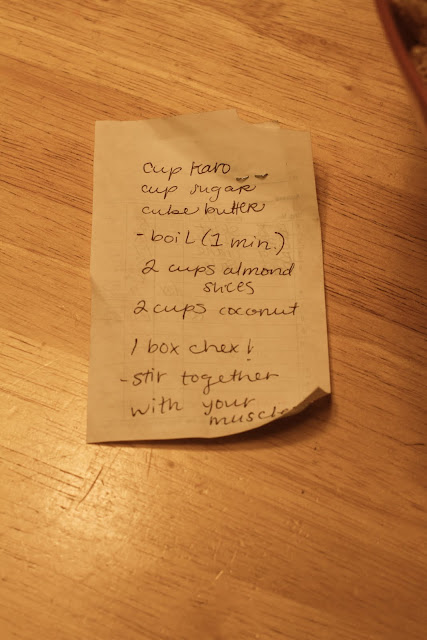 cup Karo
cup sugar
cube butter
- boil (1 min.)
2 cups almond
slices
2 cups coconut
1 box chex!
- stir together
with your
muscle